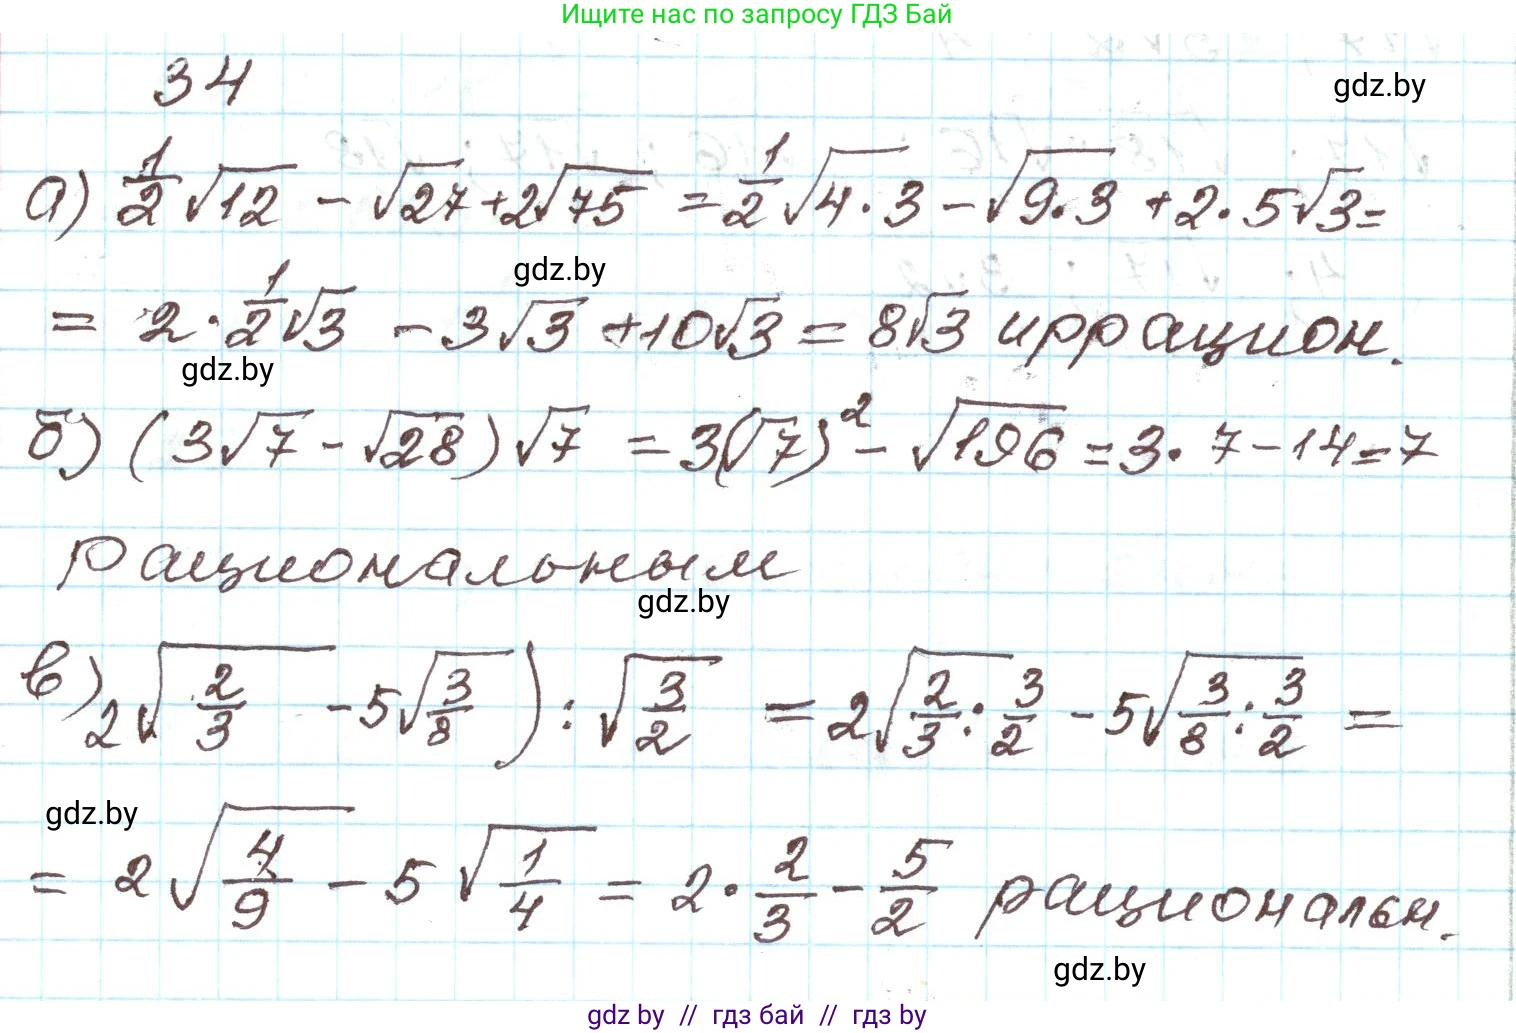 Ищите нас по запросу ГДЗ Бай
34
gdz.by
а) 1/2 √12 - √27 + 2√75 = 1/2 √4·3 - √9·3 + 2·5√3 =
gdz.by
= 2·1/2 √3 - 3√3 + 10√3 = 8√3 иррацион.
gdz.by
б) (3√7 - √28) √7 = 3(√7)² - √196 = 3·7 - 14 = 7
рациональным
gdz.by
в) 2√2/3 - 5√3/8) : √3/2 = 2√2/3 : 3/2 - 5√3/8 : 3/2 =
gdz.by
= 2√4/9 - 5√1/4 = 2·2/3 - 5/2 рациональн.
gdz.by
gdz by // гдз бай // гдз by